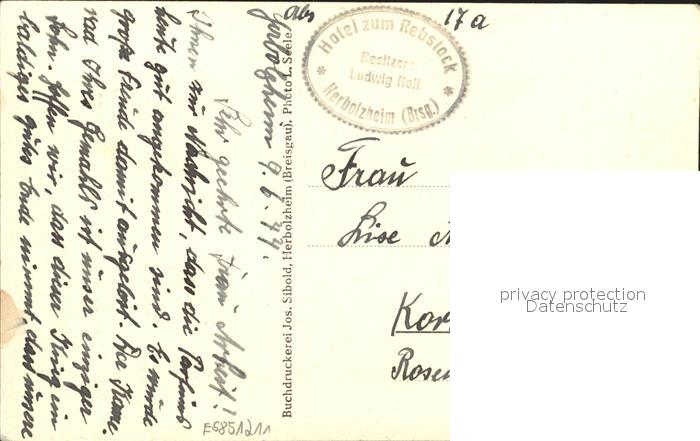 abs
17a
Hotel zum Rebstock
Besitzer:
Ludwig Roll
Herbolzheim (Brsg.)
Herbolzheim 9.6.44.
Sehr geehrte Frau
Ihnen nur Nachricht, dass die
heute gut angekommen sind. Es wurde
große Freude damit ausgelöst. Der
rad Ihres Gemahls ist unser einziger
Sohn. Hoffen wir, dass dieser Krieg ein
baldiges gutes Ende nimmt dass unsere
Buchdruckerei Jos. Sibold, Herbolzheim (Breisgau). Photo L. Seele
Frau
Lise
Kor
Rosen
privacy protection
Datenschutz
ES851211